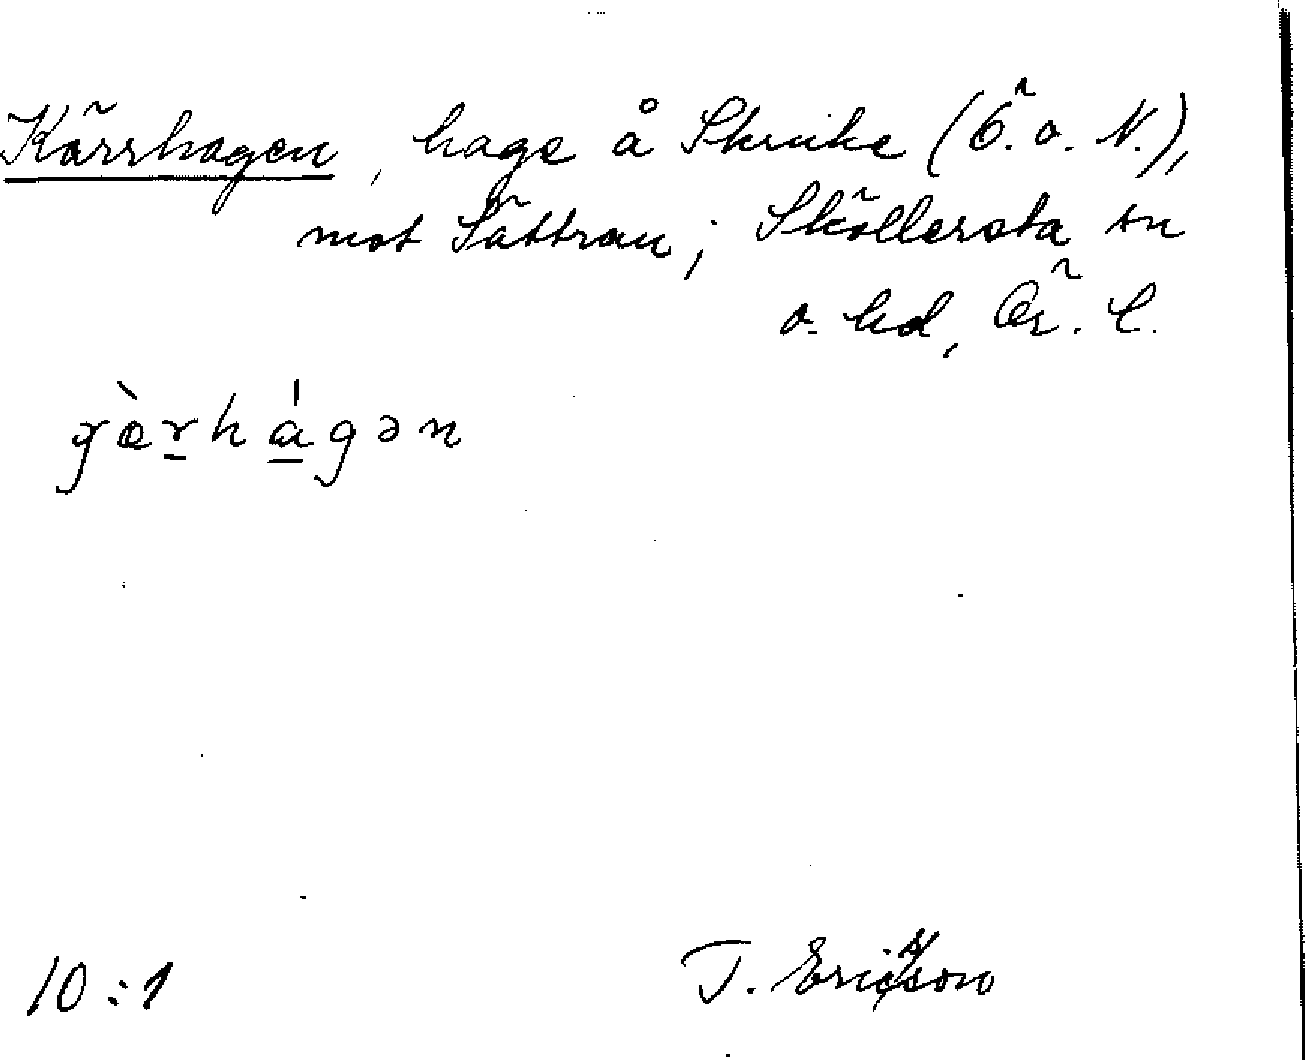 Kärrhagen, hage å Skruke (Ö. o. N.),
mot Sättran; Sköllersta sn
o. hd, Ör. l.
gæ̀rhágən
10:1 T. Ericsson